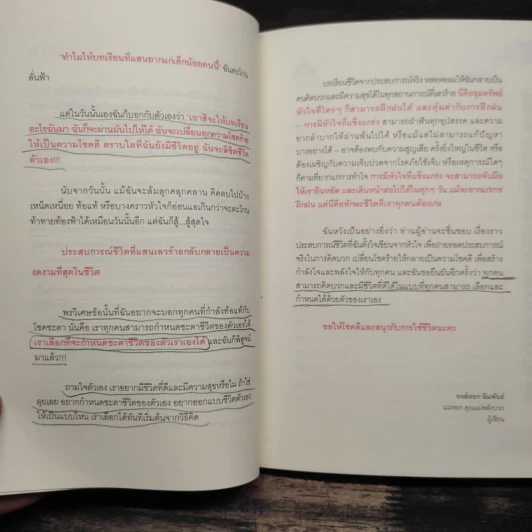 'ทำไมให้บทเรียนที่แสนยากแก่เด็กน้อยคนนี้' ฉันตะโกน
ลั่นฟ้า
แต่ในวันนั้นเองฉันก็บอกกับตัวเองว่า 'เอาสิจะให้บทเรียน
อะไรฉันมา ฉันก็จะผ่านมันไปให้ได้ ฉันจะเปลี่ยนทุกความโชคร้าย
ให้เป็นความโชคดี ตราบใดที่ฉันยังมีชีวิตอยู่ ฉันจะลิขิตชีวิต
ตัวเอง!!!'
นับจากวันนั้น แม้ฉันจะล้มลุกคลุกคลาน คิดลบไปบ้าง
เหน็ดเหนื่อย ท้อแท้ หรือบางคราวหัวใจก็อ่อนแอเกินกว่าจะตะโกน
ท้าทายท้องฟ้าได้เหมือนวันนั้นอีก แต่ฉันก็สู้...สู้สุดใจ
ประสบการณ์ชีวิตที่แสนเลวร้ายกลับกลายเป็นความ
งดงามที่สุดในชีวิต
พรวิเศษข้อนั้นที่ฉันอยากจะบอกทุกคนที่กำลังท้อแท้กับ
โชคชะตา นั่นคือ เราทุกคนสามารถกำหนดชะตาชีวิตของตัวเองได้
เราเลือกที่จะกำหนดชะตาชีวิตของตัวเราเองได้ และฉันก็พิสูจน์
มาแล้ว!!!
ถามใจตัวเอง เราอยากมีชีวิตที่ดีและมีความสุขหรือไม่ ถ้าใช่
ลุยเลย อยากกำหนดชะตาชีวิตของตัวเอง อยากออกแบบชีวิตตัวเอง
ให้เป็นแบบไหน เราเลือกได้ทันทีเริ่มต้นจากวิธีคิด
บทเรียนชีวิตจากประสบการณ์จริง หล่อหลอมให้ฉันกลายเป็น
คนคิดบวกและมีความสุขได้ในทุกสถานการณ์ที่เลวร้าย นี่คือขุมทรัพย์
หัวใจที่ใครๆ ก็สามารถฝึกฝนได้ และคุ้มค่ากับการฝึกฝน
– การมีหัวใจที่แข็งแกร่ง สามารถฝ่าฟันทุกอุปสรรค และความ
ยากลำบากให้ผ่านพ้นไปได้ หรือแม้แต่ไม่สามารถแก้ปัญหา
บางอย่างได้ – อาจต้องพบกับความสูญเสีย ครั้งยิ่งใหญ่ในชีวิต หรือ
ต้องเผชิญกับความเจ็บปวดจากโรคภัยไข้เจ็บ หรือเหตุการณ์ใดๆ
ก็ตามที่ยากแก่การทำใจ การมีหัวใจที่แข็งแกร่ง จะสามารถผลักดัน
ให้เรายืนหยัด และเดินหน้าต่อไปได้ในทุกๆ วัน แม้จะยากแก่การ
ฝึกฝน แต่นี่คือทักษะชีวิตที่เราทุกคนต้องเก่ง
ฉันหวังเป็นอย่างยิ่งว่า ท่านผู้อ่านจะชื่นชอบ เรื่องราว
ประสบการณ์ชีวิตที่ฉันตั้งใจเขียนจากหัวใจ เพื่อถ่ายทอดประสบการณ์
จริงในการคิดบวก เปลี่ยนโชคร้ายให้กลายเป็นความโชคดี เพื่อสร้าง
กำลังใจและพลังใจให้กับทุกคน และฉันขอยืนยันอีกครั้งว่า ทุกคน
สามารถคิดบวกและมีชีวิตที่ดีได้ในแบบที่ทุกคนสามารถ เลือกและ
กำหนดได้ด้วยตัวของเราเอง
ขอให้โชคดีและสนุกกับการใช้ชีวิตนะคะ
แม่หยก คุณแม่พลังบวก
ผู้เขียน